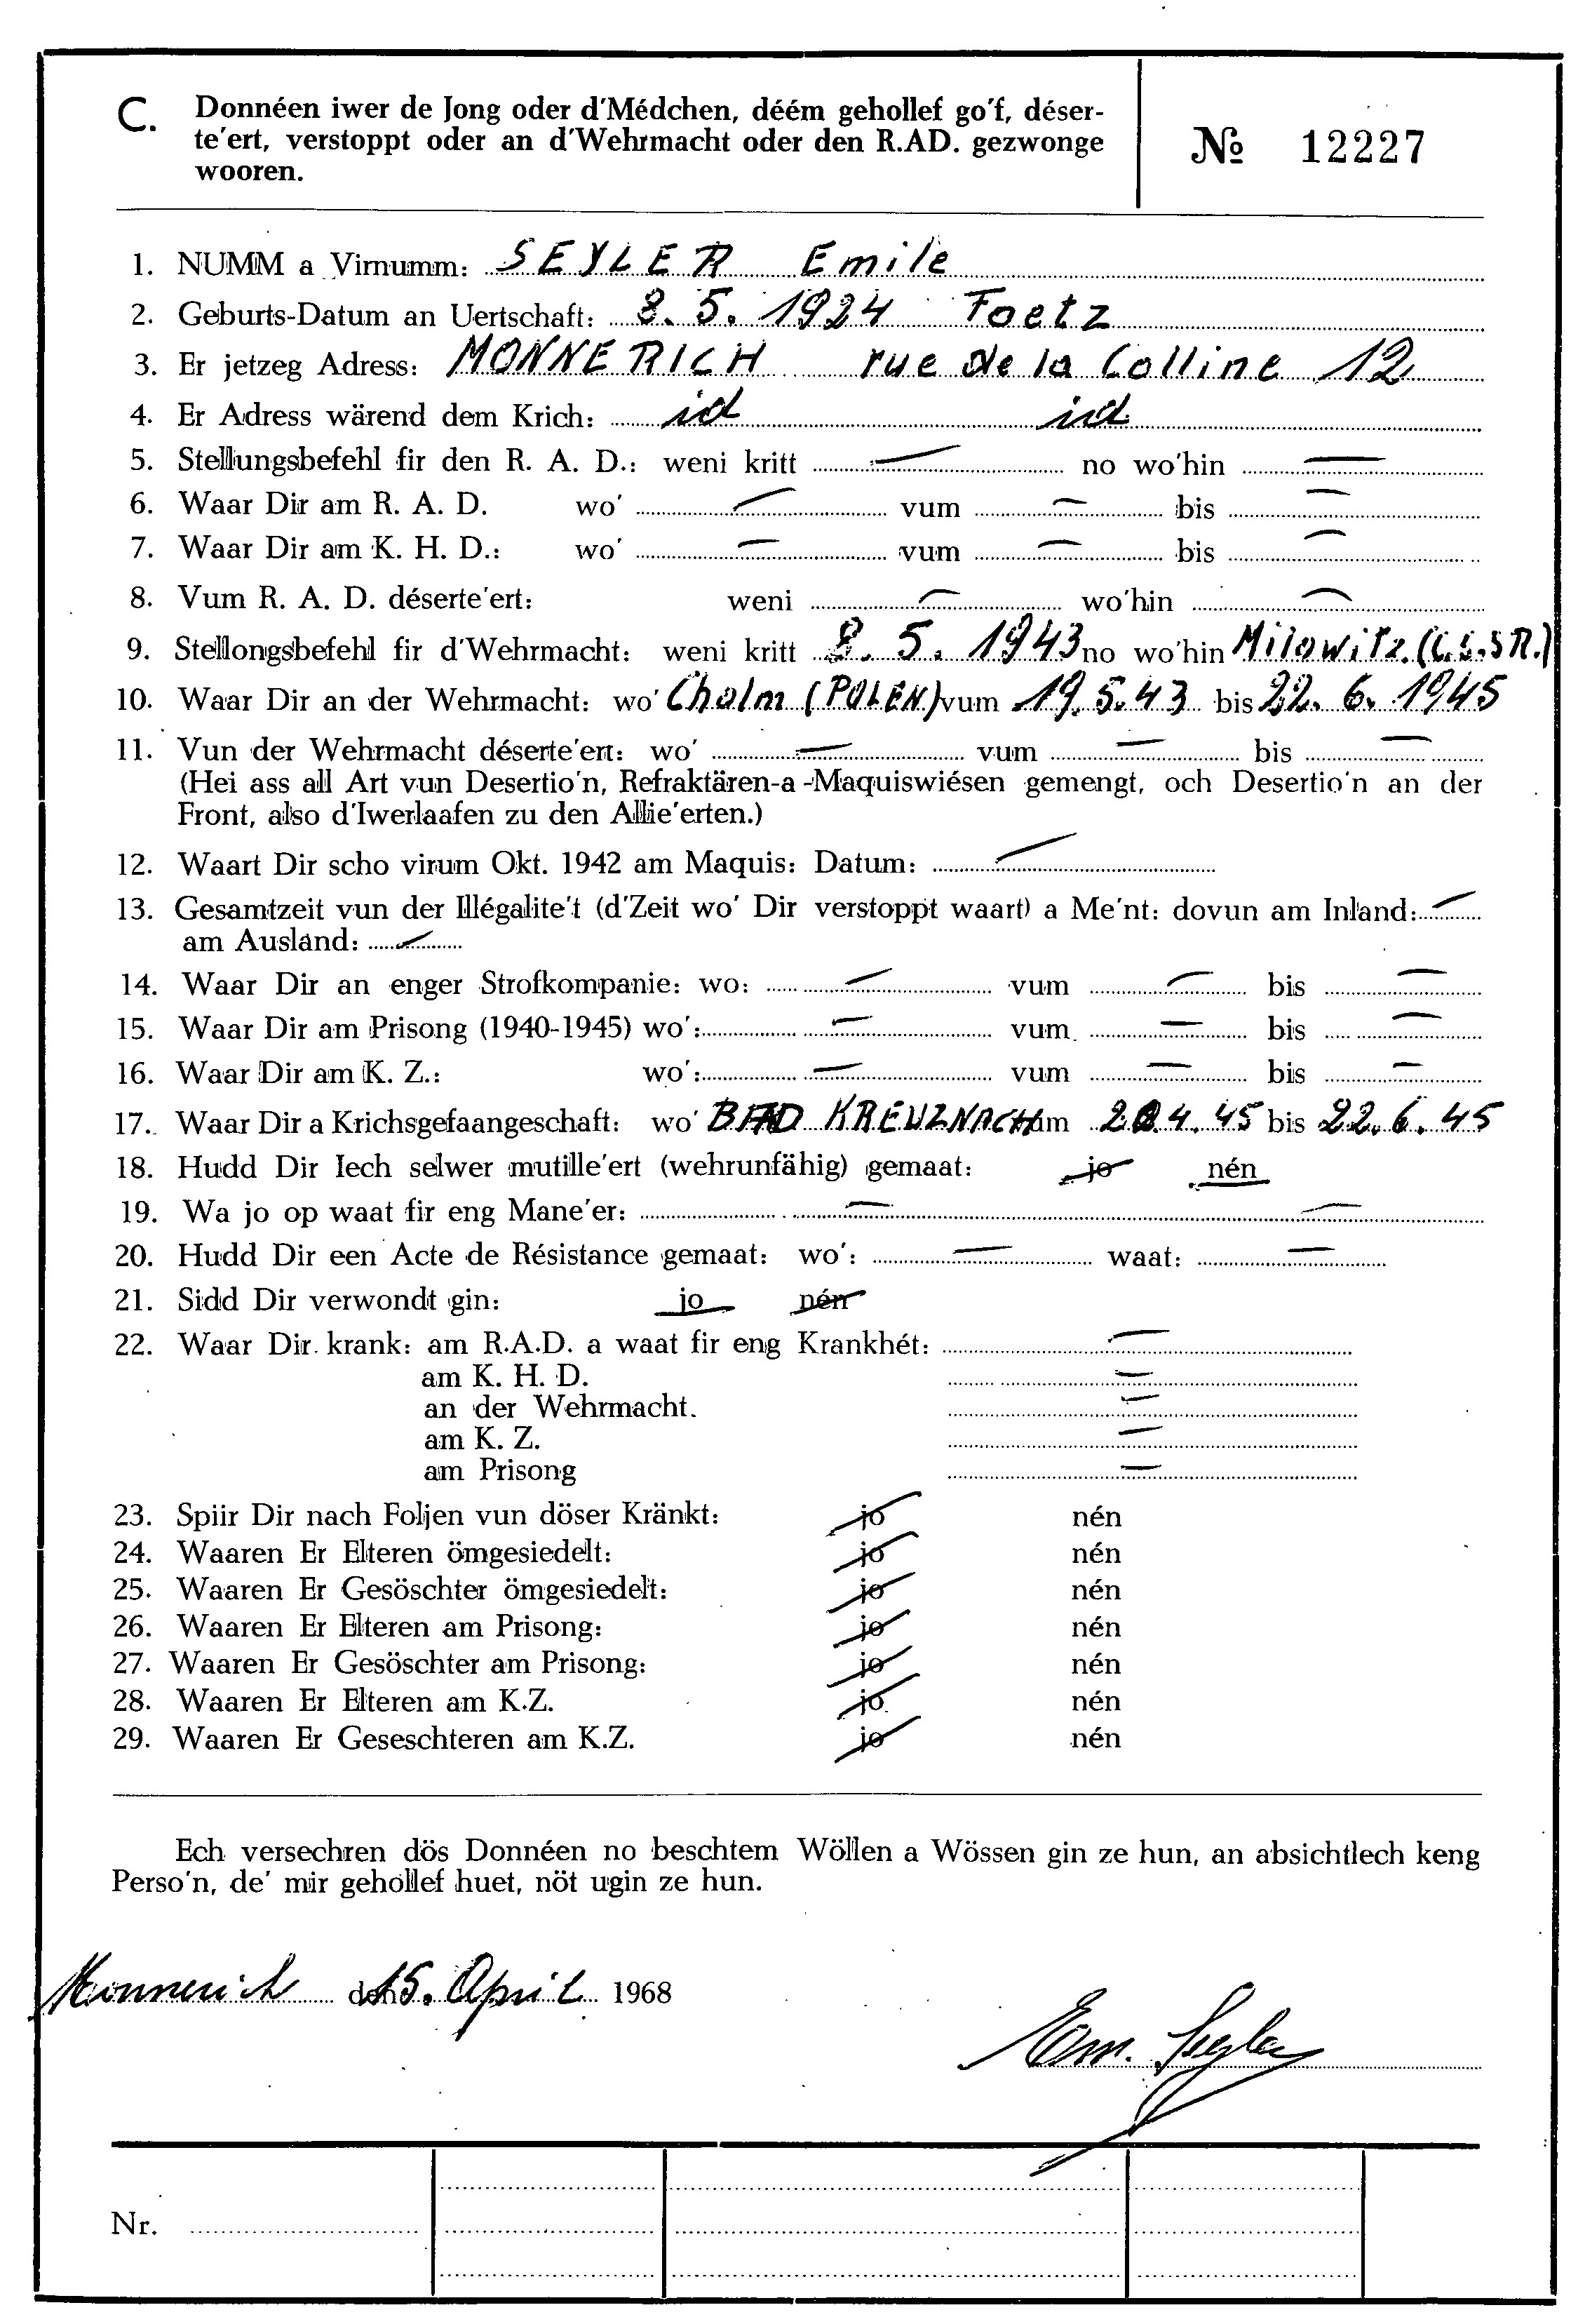 C. Donnéen iwer de Jong oder d'Médchen, déém gehollef go'f, déser-
te'ert, verstoppt oder an d'Wehrmacht oder den R.AD. gezwonge
wooren.
№ 12227
1. NUMM a Virnumm: SEYLER Emile
2. Geburts-Datum an Uertschaft: 8. 5. 1924 Foetz
3. Er jetzeg Adress: MONNERICH rue de la Colline 12
4. Er Adress wärend dem Krich: id id
5. Stellungsbefehl fir den R. A. D.: weni kritt — no wo'hin —
6. Waar Dir am R. A. D. wo' — vum — bis —
7. Waar Dir am K. H. D.: wo' — vum — bis —
8. Vum R. A. D. déserte'ert: weni — wo'hin —
9. Stellongsbefehl fir d'Wehrmacht: weni kritt 8. 5. 1943 no wo'hin Milowitz (C.S.S R.)
10. Waar Dir an der Wehrmacht: wo' Cholm (POLEN) vum 19.5.43 bis 22. 6. 1945
11. Vun der Wehrmacht déserte'ert: wo' — vum — bis —
(Hei ass all Art vun Desertio'n, Refraktären-a -Maquiswiésen gemengt, och Desertio'n an der
Front, also d'Iwerlaafen zu den Allie'erten.)
12. Waart Dir scho virum Okt. 1942 am Maquis: Datum: —
13. Gesamtzeit vun der Illégalite't (d'Zeit wo' Dir verstoppt waart) a Me'nt: dovun am Inland: —
am Ausland: —
14. Waar Dir an enger Strofkompanie: wo: — vum — bis —
15. Waar Dir am Prisong (1940-1945) wo': — vum — bis —
16. Waar Dir am K. Z.: wo': — vum — bis —
17. Waar Dir a Krichsgefaangeschaft: wo' BAD KREUZNACH um 4. 45 bis 22. 6. 45
18. Hudd Dir Iech selwer mutille'ert (wehrunfähig) gemaat: jo nén
19. Wa jo op waat fir eng Mane'er: — —
20. Hudd Dir een Acte de Résistance gemaat: wo': — waat: —
21. Sidd Dir verwondt gin: jo nén
22. Waar Dir krank: am R.A.D. a waat fir eng Krankhét: —
am K. H. D. —
an der Wehrmacht. —
am K. Z. —
am Prisong —
23. Spiir Dir nach Foljen vun döser Kränkt: jo nén
24. Waaren Er Elteren ömgesiedelt: jo nén
25. Waaren Er Gesöschter ömgesiedelt: jo nén
26. Waaren Er Elteren am Prisong: jo nén
27. Waaren Er Gesöschter am Prisong: jo nén
28. Waaren Er Elteren am K.Z. jo nén
29. Waaren Er Geseschteren am K.Z. jo nén
Ech versechren dös Donnéen no beschtem Wöllen a Wössen gin ze hun, an absichtlech keng
Perso'n, de' mir gehollef huet, nöt ugin ze hun.
Monnerich den 15. April 1968
Em. Seyler
Nr.